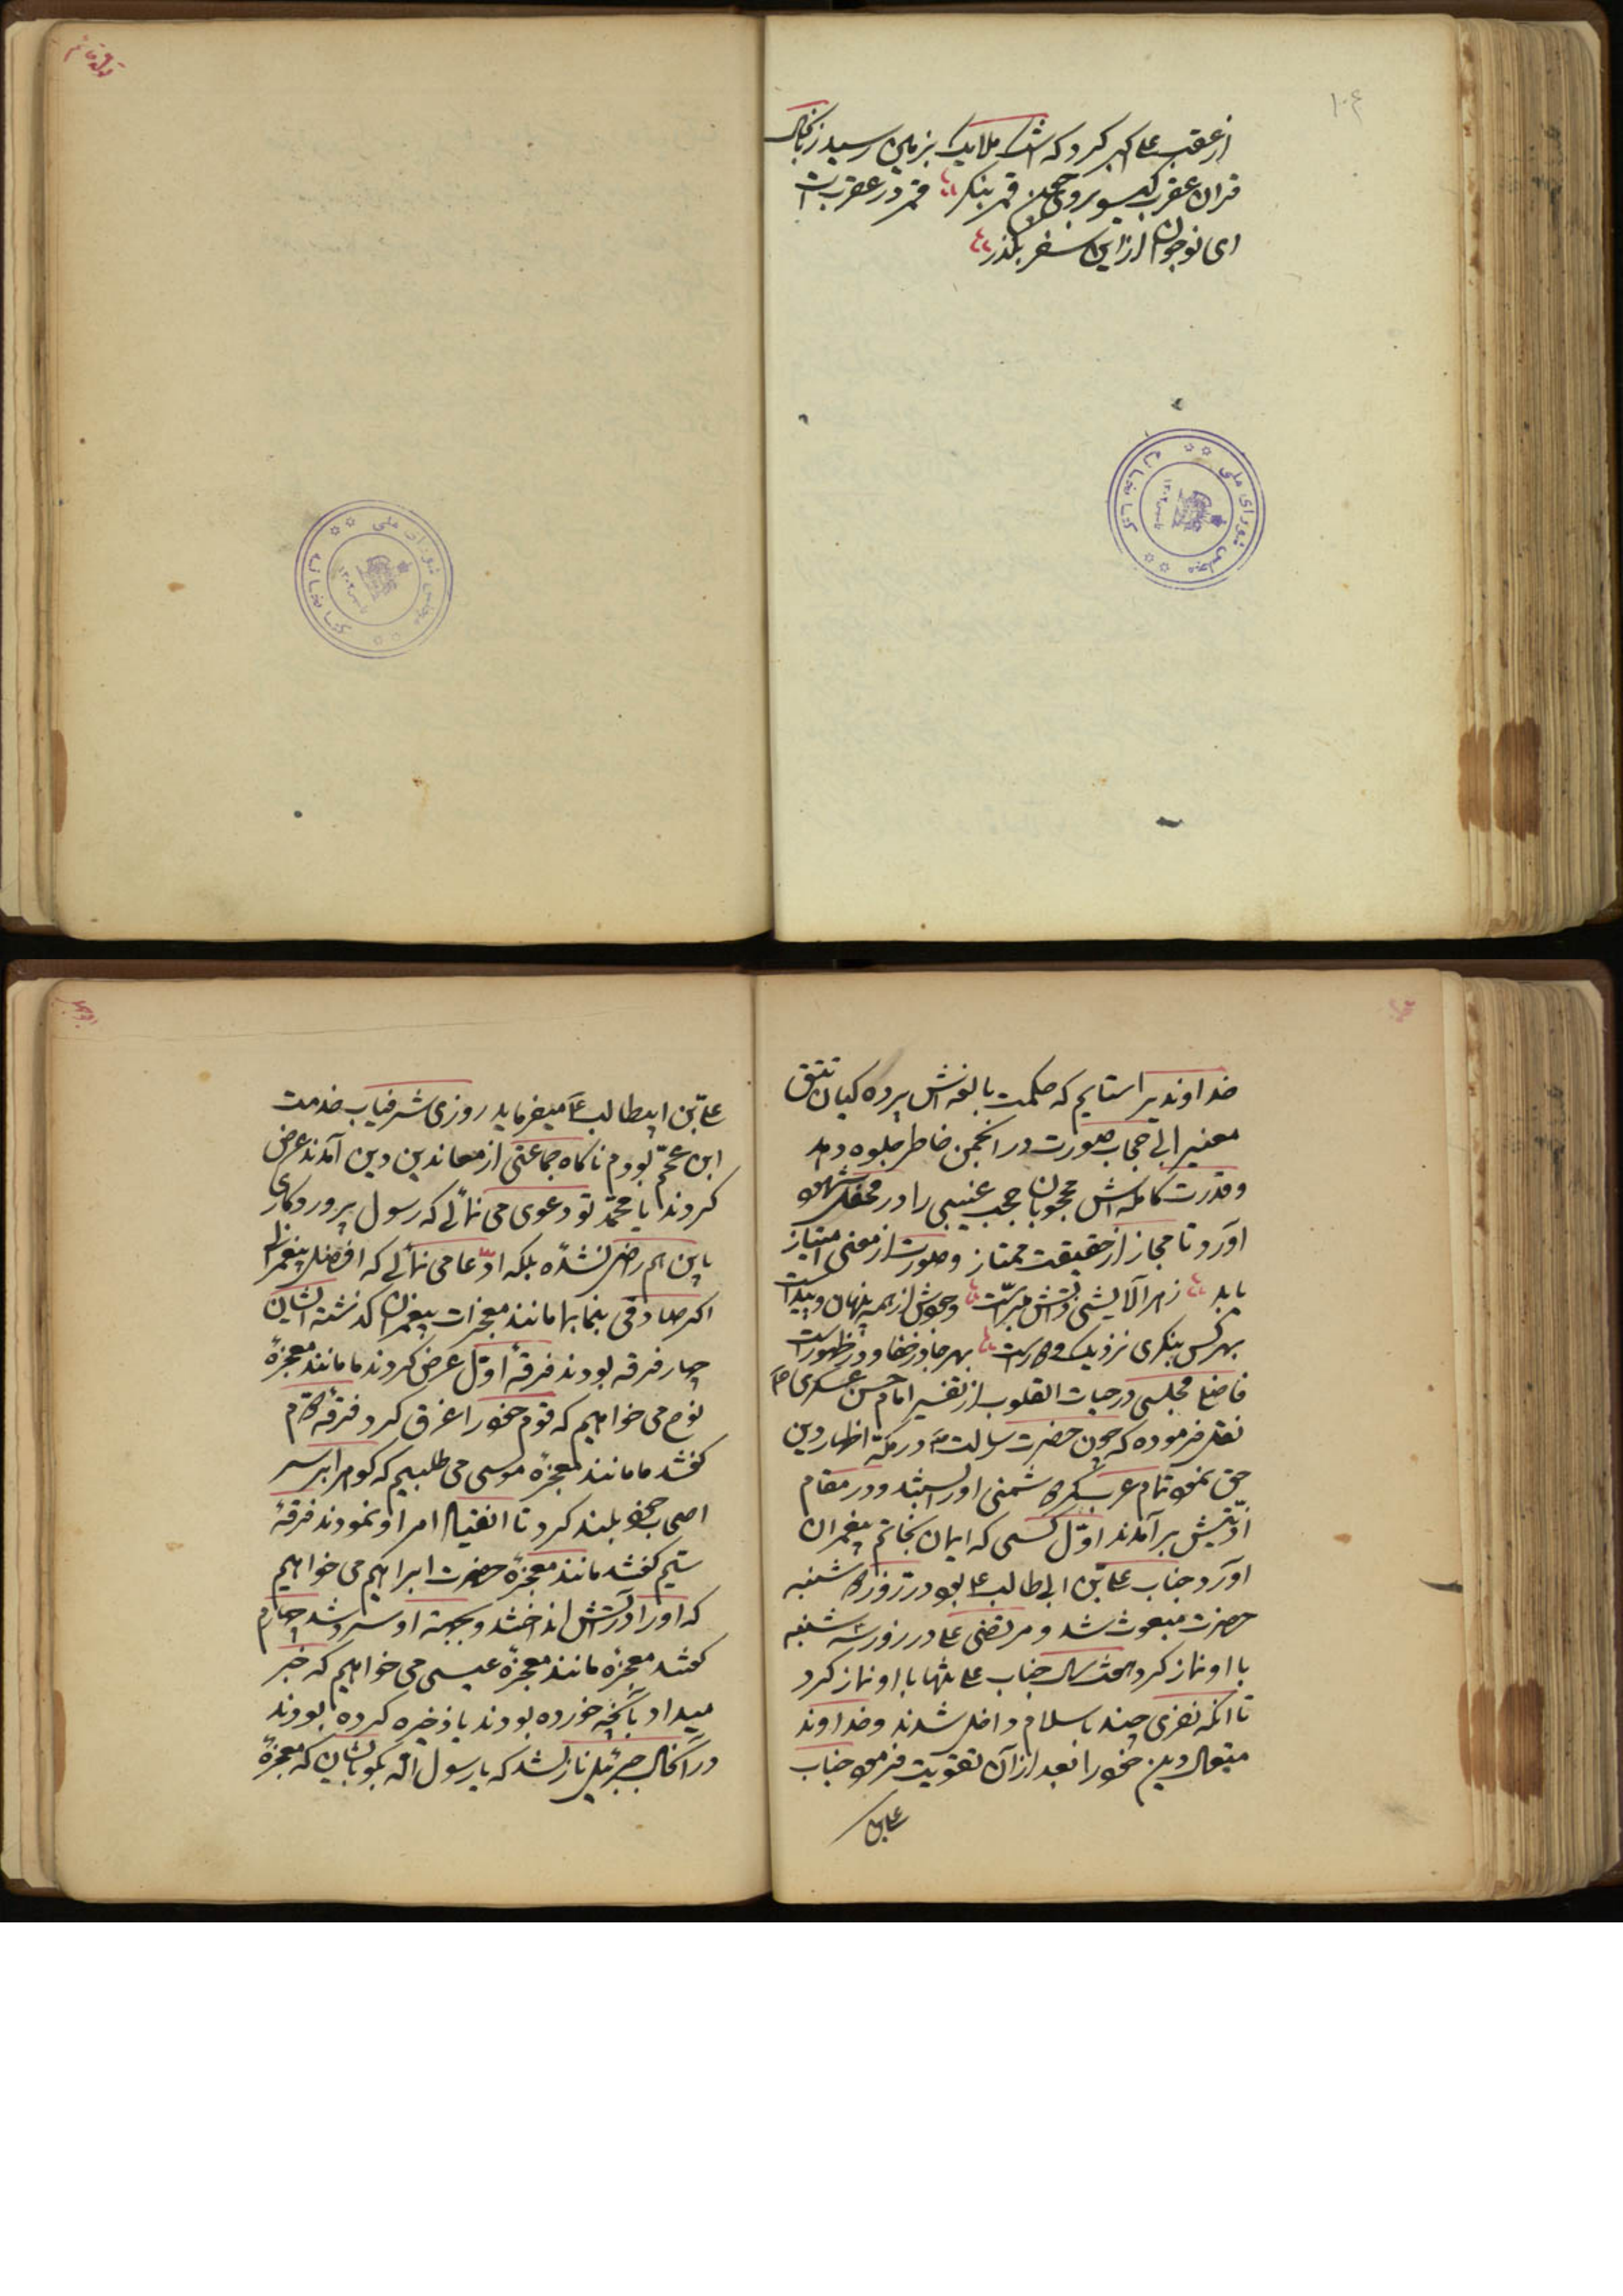 ۱۰۴
از عقب علی اکبر کرد که اشک ملایک بزمین رسید زبانحال
قران عقرب کیسو بروی چون قمر بنکر قمر در عقرب است
ای نوجوان از این سفر بکذر
کتابخانه مجلس شورای ملی
خداوندیرا ستایم که حکمت بالغه‌اش پرده کیان تتق
معنیرا بی حجاب صورت در انجمن خاطر جلوه دهد
و قدرت کامله‌اش محجوبان حجب غیبی را در محفل شهود
آورد تا مجاز از حقیقت ممتاز و صورت از معنی امتیاز
یابد زهر آلایشی ذاتش مبرّاست وجودش از همه پنهان و پیداست
بهر کس بنکری نزدیک و دور است بهر جا در خفا و در ظهور است
فاضل مجلسی در حیات القلوب از تفسیر امام حسن عسکری ع
نقل فرموده که چون حضرت رسالت ص در مکه اظهار دین
حق نمود تمام عرب کمر دشمنی او را بستند و در مقام
اذیّتش برآمدند اوّل کسی که ایمان بخاتم پیغمبران
آورد جناب علیّ بن ابی طالب ع بود در روز دوشنبه
حضرت مبعوث شد و مرتضی علی در روز سه شنبه
با او نماز کرد هفت سال جناب علی تنها با او نماز کرد
تا آنکه نفری چند باسلام داخل شدند و خداوند
متعال دین خود را بعد از آن تقویت فرمود جناب
علی بن
علیّ بن ابیطالب ع میفرماید روزی شرفیاب خدمت
ابن عمّم بودم ناکاه جماعتی از معاندین دین آمدند عرض
کردند یا محمّد تو دعوی می نمائی که رسول پروردکاری
باین هم راضی نشده بلکه ادّعا می نمائی که افضل پیغمبرانم
اکر صادقی بنما بما مانند معجزات پیغمبران کذشته ایشان
چهار فرقه بودند فرقهٔ اوّل عرض کردند ما مانند معجزهٔ
نوح می خواهیم که قوم خود را غرق کرد فرقه دوّم
کفتند ما مانند معجزهٔ موسی می طلبیم که کوه را بر سر
اصحاب خود بلند کرد تا انقیاد امر او نمودند فرقهٔ
سیّم کفتند مانند معجزهٔ حضرت ابراهیم می خواهیم
که او را در آتش انداختند و بجهته او سرد شد چهارم
کفتند معجزهٔ مانند معجزهٔ عیسی می خواهیم که خبر
میداد بآنچه خورده بودند یا ذخیره کرده بودند
در آنحال جبرئیل نازل شد که یا رسول الله بکو بایشان که معجزهٔ